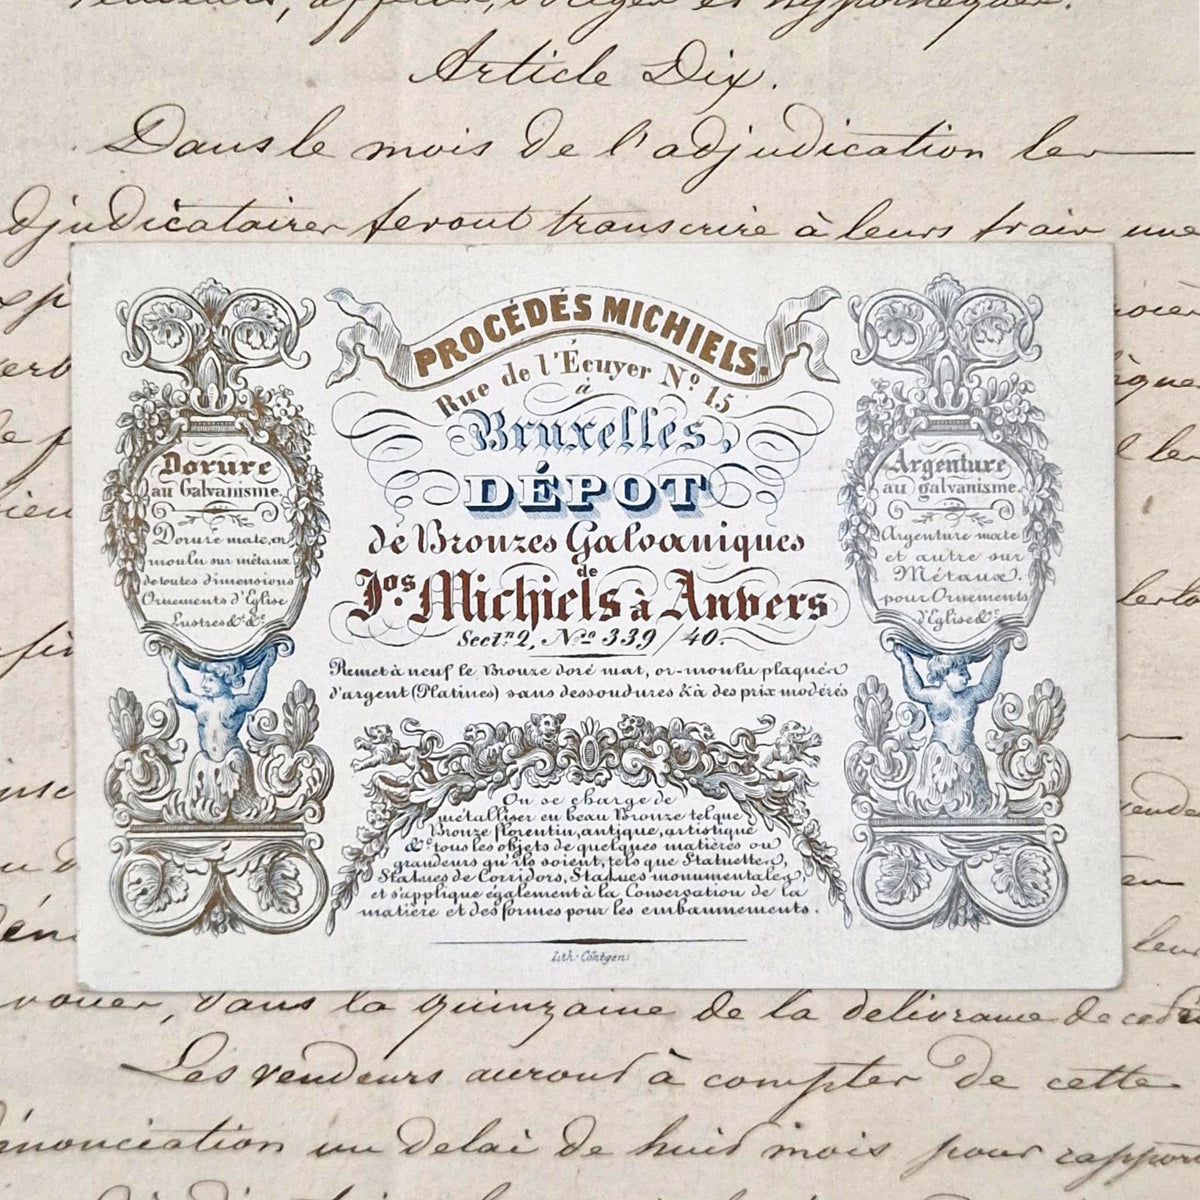 Article Dix.
Dans le mois de l'adjudication les
adjudicataires feront transcrire à leurs frais une
PROCÉDÉS MICHIELS.
Rue de l'Écuyer N.º 15
à
Bruxelles,
DÉPOT
de Bronzes Galvaniques
de
Jos. Michiels à Anvers
Sectn. 2, No. 339/40.
Remet à neuf le Bronze doré mat, or-moulu plaqués
d'argent (Platines) sans dessoudures & à des prix modérés
Dorure
au Galvanisme,
Dorure mate, or
moulu sur métaux
de toutes dimensions
Ornements d'Église
Lustres &c. &c.
Argenture
au galvanisme.
Argenture mate
et autre sur
Métaux.
pour Ornements
d'Église &c.
On se charge de
métalliser en beau Bronze tel que
Bronze florentin, antique, artistique
&c. tous les objets de quelques matières ou
grandeurs qu'ils soient, tels que Statuettes,
Statues de Corridors, Statues monumentales,
et s'applique également à la Conservation de la
matière et des formes pour les embaumements.
Lith. Cöntgen
vouer, dans la quinzaine de la délivrance de
Les vendeurs auront à compter de cette
énonciation un delai de huit mois pour